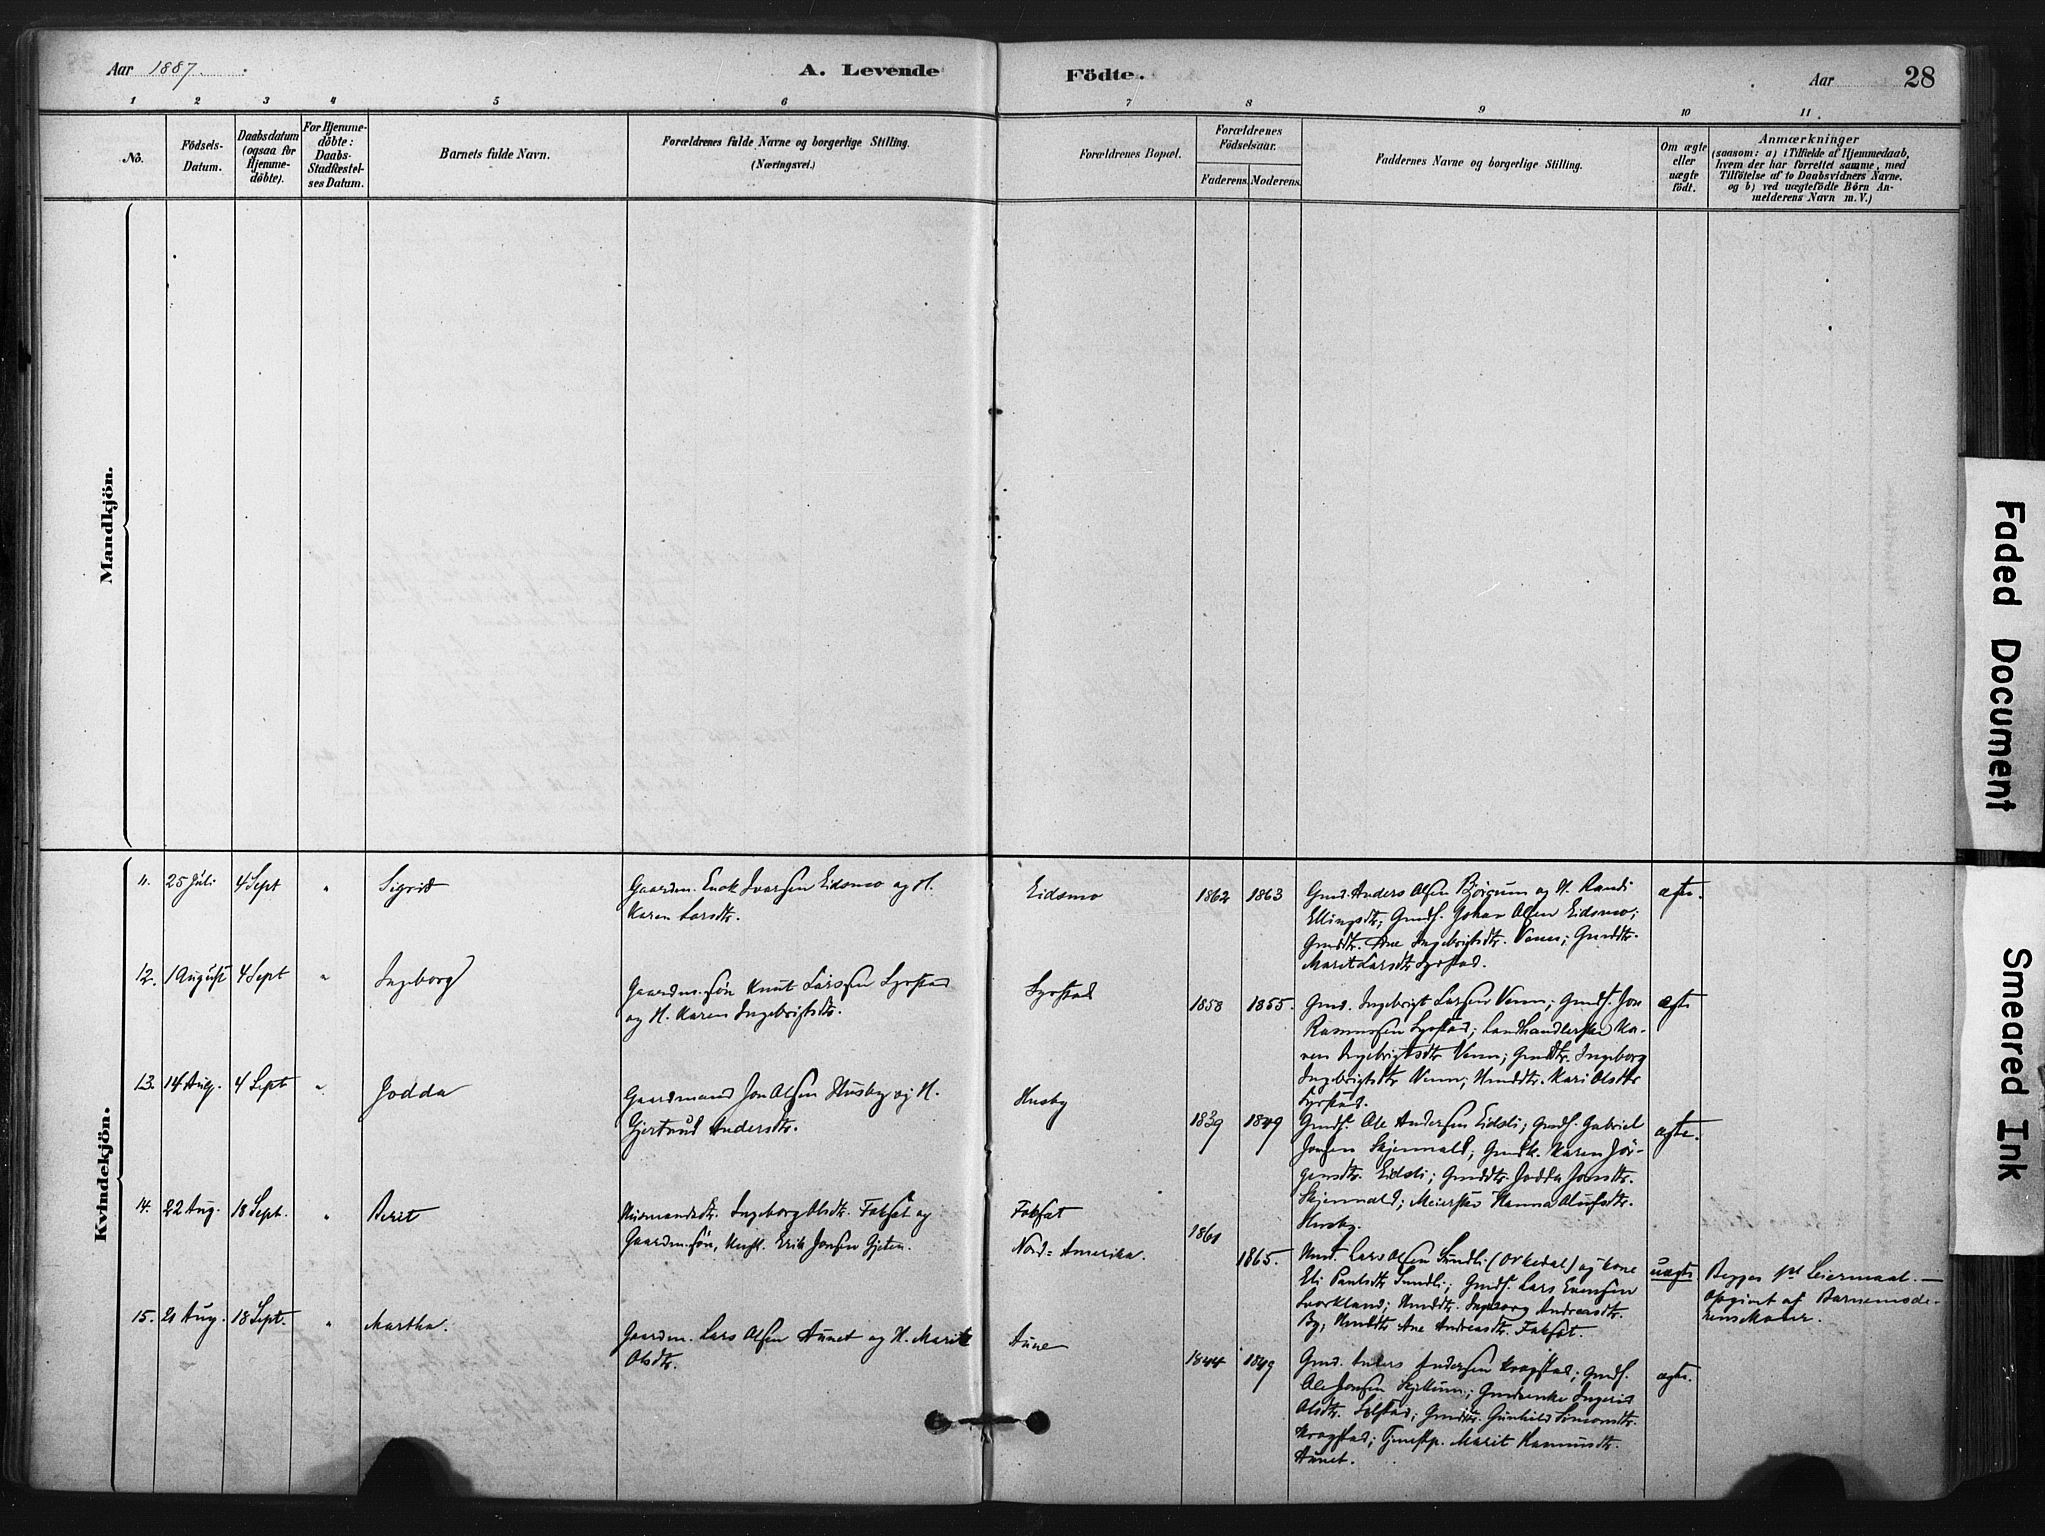 Aar 1887. A. Levende Födte. Aar 28
1 2 3 4 5 6 7 8 9 10 11
No.
Födsels-Datum.
Daabsdatum (ogsaa for Hjemmedöbte).
For Hjemmedöbte: Daabs-Stadfæstelses Datum.
Barnets fulde Navn.
Forældrenes fulde Navne og borgerlige Stilling.
(Næringsvei.)
Forældrenes Bopæl.
Forældrenes Födselsaar.
Faderens. Moderens.
Faddernes Navne og borgerlige Stilling.
Om ægte eller uægte födt.
Anmærkninger
(saasom: a) i Tilfælde af Hjemmedaab,
hvem der har forrettet samme, med
Tilföielse af to Daabsvidners Navne,
og b) ved uægtefödte Börn An-
melderens Navn m. V.)
Mandkjön.
Kvindekjön.
11. 25 Juli 4 Sept " Sigrid
Gaardm. Enok Ivarsen Eidsmo og H.
Karen Larsdtr.
Eidsmo
1862 1863
Gmd. Anders Olsen Björgum og H. Randi
Ellingsdtr; Gmds. Johan Olsen Eidsmo;
Gmddtr. Ane Ingebrigtsdtr. Venn; Gmddtr.
Marit Larsdtr Syrstad.
ægte.
12. 1 August 4 Sept " Ingeborg
Gaardm.sön Knut Larssen Syrstad
og H. Karen Ingebrigtsdtr.
Syrstad
1858 1855.
Gmd. Ingebrigt Larsen Venn; Gmds. Jon
Rasmussen Syrstad; Landhandlerske Ka-
ren Ingebrigtsdtr Venn; Gmddtr. Ingeborg
Ingebrigtsdtr Venn; Hmddtr. Kari Olsdtr
Syrstad.
ægte
13. 14 Aug. 4 Sept " Jodda
Gaardmand Jon Olsen Husby og H.
Gjertrud Andersdtr.
Husby
1839 1849
Gmds. Ole Andersen Eidsli; Gmds. Gabriel
Jonsen Skjenald; Gmdk. Karen Jör-
gensdtr. Eidsli; Gmddtr. Jodda Jonsdtr.
Skjenald; Meierske Hanna Olufsdtr.
Husby.
ægte.
14. 22 Aug. 18 Sept. " Berit
Husmandsdtr. Ingeborg Olsdtr. Foksæt og
Gaardm.sön, Ungk. Erik Jonsen Gjeten.
Foksæt
Nord-Amerika.
1861
1865.
Hmd. Lars Olsen Sundli (Orkedal) og kone
Eli Paulsdtr Sundli; Gmds. Lars Evensen
Svorkland; Hmddtr. Ingeborg Andreasdtr.
By; Hmddtr Ane Andreasdtr. Foksæt.
uægte
Begges 1st Leiermaal.
Opgivet af Barnemode-
rens Moder.
15. 21 Aug. 18 Sept. " Martha.
Gaardm. Lars Olsen Aunet og H. Marit
Olsdtr.
Aune
1844 1849
Gmd. Anders Andersen Kragstad; Gmds.
Ole Jonsen Skjettum; Gmdenke Ingerid
Olsdtr. Solstad; Gmddtr. Gunhild Simonsdtr.
Kragstad; Tjenestp. Marit Rasmusdtr.
Aunet.
ægte.
Faded Document
Smeared Ink